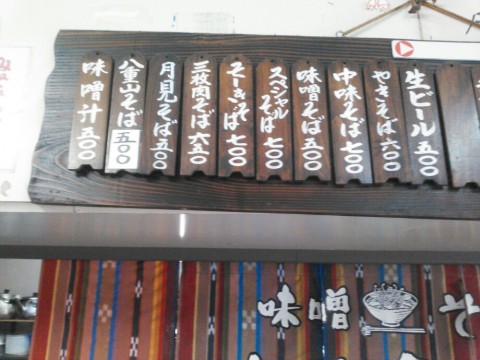 生ビール 五〇〇
やきそば 六〇〇
中味そば 七〇〇
味噌そば 五〇〇
スペシャルそば 七〇〇
そーきそば 七〇〇
三枚肉そば 六五〇
月見そば 五〇〇
八重山そば 五〇〇
味噌汁 五〇〇
味噌
そ